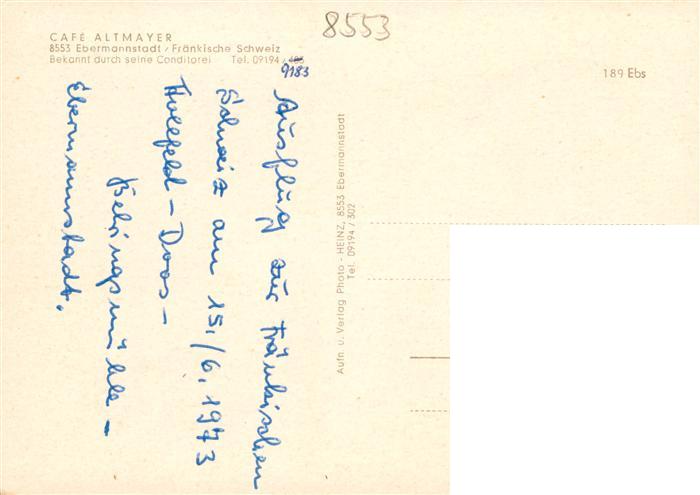 8553
CAFÉ ALTMAYER
8553 Ebermannstadt / Fränkische Schweiz
Bekannt durch seine Conditorei Tel. 09194 /
9183
189 Ebs
Ausflug zur Fränkischen
Schweiz am 15./6. 1973
Hollfeld - Doos -
Behringsmühle -
Ebermannstadt.
Aufn u. Verlag Photo - HEINZ, 8553 Ebermannstadt
Tel. 09194 / 302